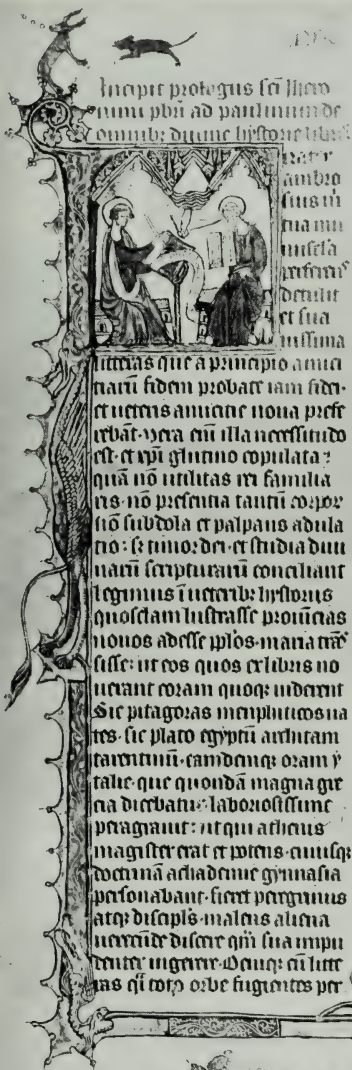 Incipit prologus sci Ihero
nimi pbri ad paulinum de
omnibz diuine hystorie libris
Frater
ambro
sius m
tua mu
nuscla
perferens
detulit
et sua
uissima
litteras que a principio amici
tiarum fidem probate iam fidei
et ueteris amicitie noua prefe
rebat. uera eni illa necessitudo
est. et xpi glutino copulata:
quā nō utilitas rei familia
ris. nō presentia tantū corpor
nō subdola et palpans adula
tio: sz timor dei. et studia diui
narū scripturarū conciliant
Legimus ī ueteribz hystoriis
quosdam lustrasse prouīcias
nouos adesse pplos. maria trās
sisse: ut eos quos ex libris no
uerant coram quoqz uiderent
Sic pitagoras memphiticos ua
tes. sic plato egyptū architam
tarentinū. eamdemqz oram y
talie. que quondā magna gre
cia dicebatur laboriosissime
peragrauit: ut qui athenis
magister erat et potens. cuiusqz
doctrinā achademie gymnasia
personabant. fieret peregrinus
atqz discipls. malens aliena
uerecūde discere qm̄ sua impu
denter ingerere. Deniqz cū litte
ras qi toto orbe fugientes per